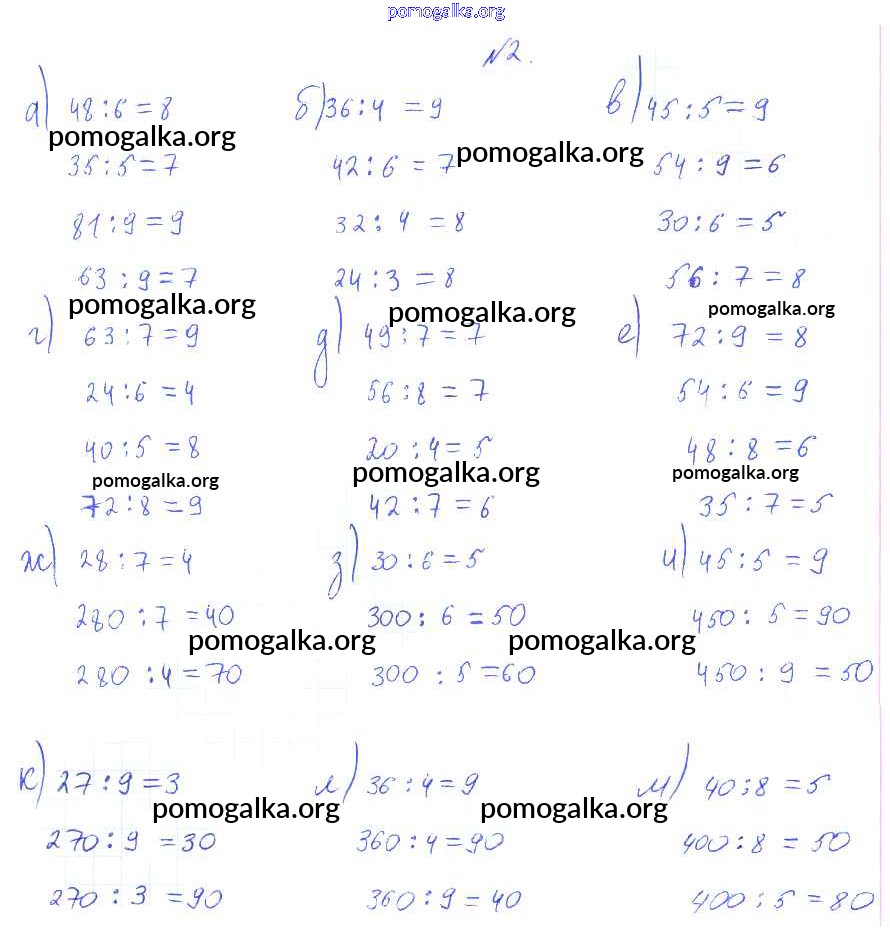 pomogalka.org
№2.
а) 48:6=8 б) 36:4=9 в) 45:5=9
pomogalka.org
35:5=7 42:6=7 pomogalka.org 54:9=6
81:9=9 32:4=8 30:6=5
63:9=7 24:3=8 56:7=8
pomogalka.org pomogalka.org pomogalka.org
г) 63:7=9 д) 49:7=7 е) 72:9=8
24:6=4 56:8=7 54:6=9
40:5=8 20:4=5 48:8=6
pomogalka.org pomogalka.org pomogalka.org
72:8=9 42:7=6 35:7=5
ж) 28:7=4 з) 30:6=5 и) 45:5=9
280:7=40 300:6=50 450:5=90
pomogalka.org pomogalka.org
280:4=70 300:5=60 450:9=50
к) 27:9=3 л) 36:4=9 м) 40:8=5
pomogalka.org pomogalka.org
270:9=30 360:4=90 400:8=50
270:3=90 360:9=40 400:5=80